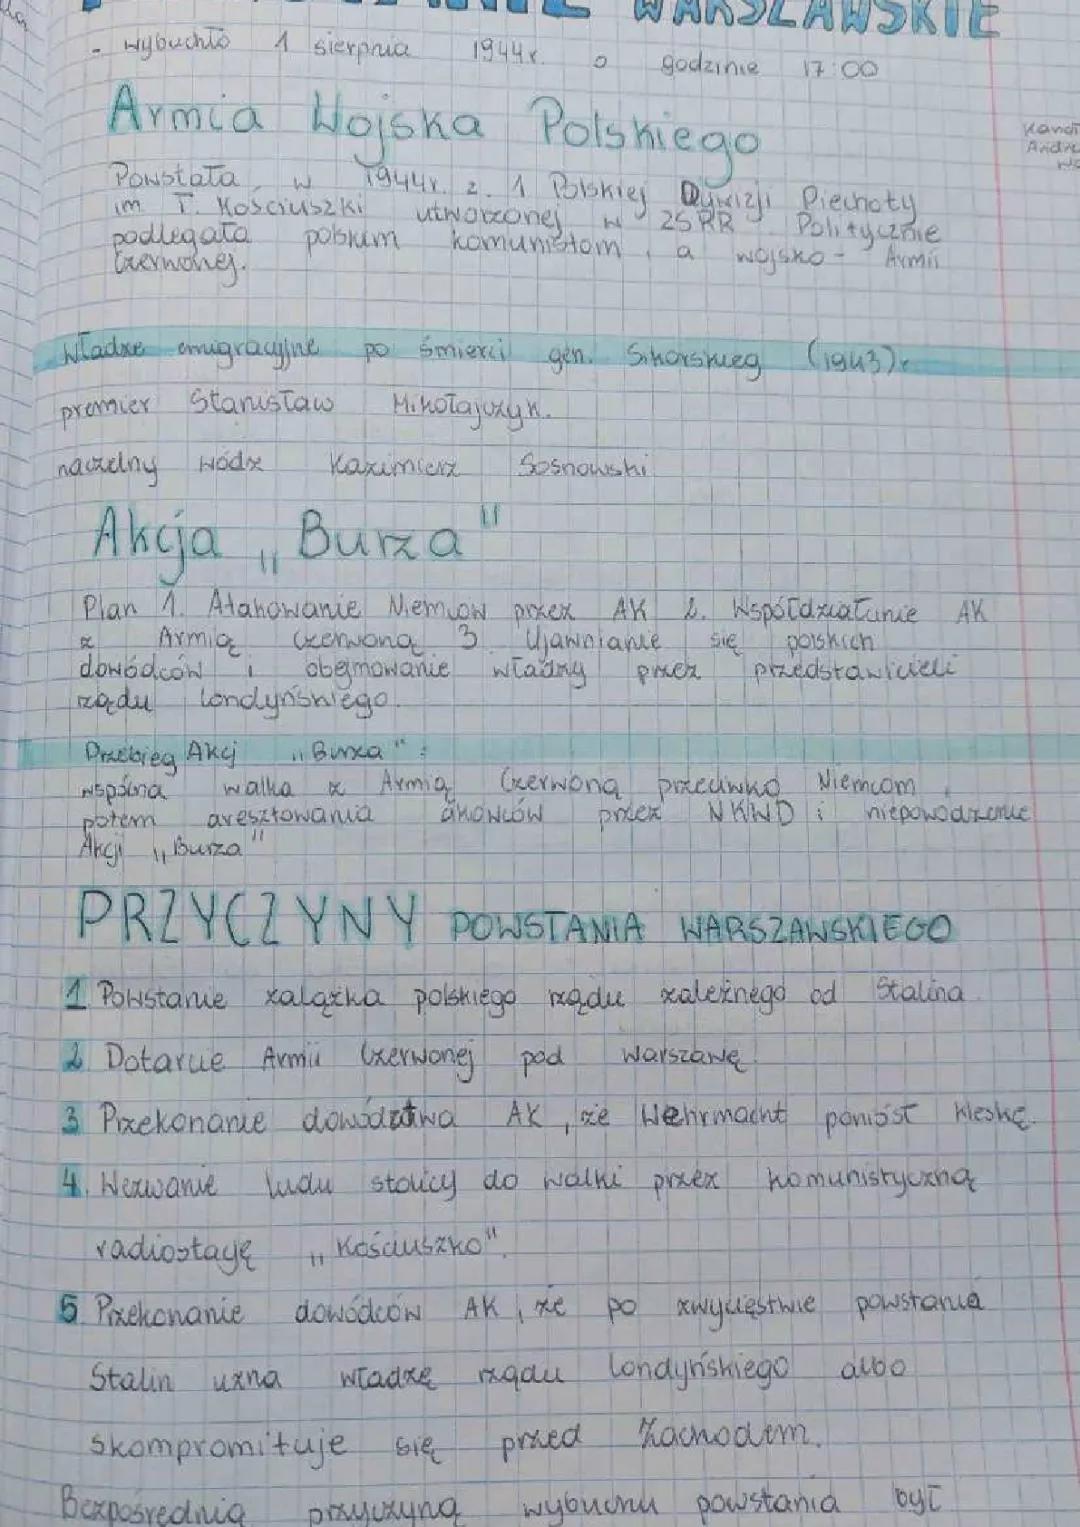 WARSZAWSKIE
- wybuchło 1 sierpnia 1944r. o godzinie 17:00
Armia Wojska Polskiego
Powstała w 1944r. z. 1 Polskiej Dywizji Piechoty
im T. Kościuszki utworzonej w ZSRR. Politycznie
podlegała polskim komunistom, a wojsko - Armii
Czerwonej.
Władze emigracyjne po śmierci gen. Sikorskieg (1943)r
premier Stanisław Mikołajczyk.
naczelny wódz Kazimierz Sosnowski
Akcja „Burza"
Plan 1. Atakowanie Niemców przez AK 2. Współdziałanie AK
z Armią Czerwoną 3 Ujawnianie się polskich
dowódców i obejmowanie władzy przez przedstawicieli
rządu londyńskiego.
Przebieg Akcj „Burza":
wspólna walka z Armią Czerwoną przeciwko Niemcom,
potem aresztowania akowców przez NKWD i niepowodzenie
Akcji „Burza"
PRZYCZYNY POWSTANIA WARSZAWSKIEGO
1 Powstanie zalążka polskiego rządu zależnego od Stalina.
2 Dotarcie Armii Czerwonej pod Warszawę.
3 Przekonanie dowództwa AK, że Wehrmacht poniósł klęskę.
4. Wezwanie ludu stolicy do walki przez komunistyczną
radiostację „Kościuszko".
5 Przekonanie dowódców AK, że po zwycięstwie powstania
Stalin uzna władzę rządu londyńskiego albo
skompromituje się przed Zachodem.
Bezpośrednią przyczyną wybuchu powstania był